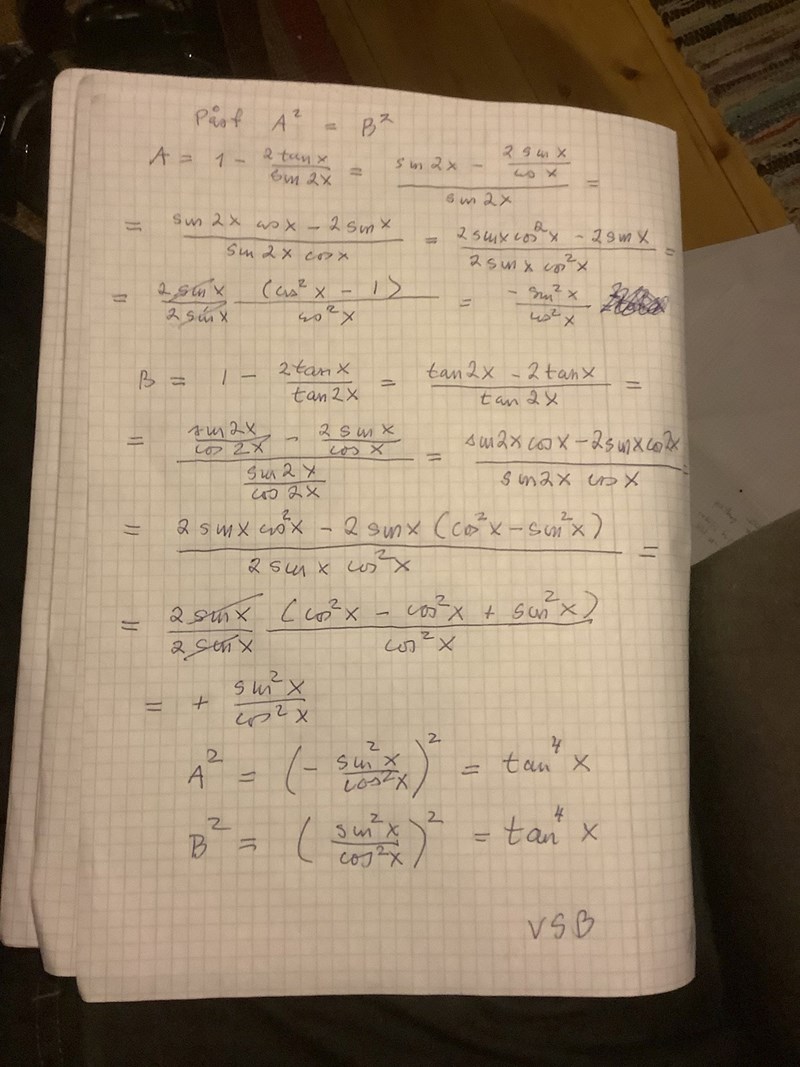 Påst A² = B²
A = 1 - 2 tan x / sin 2x = (sin 2x - 2 sin x / cos x) / sin 2x =
= (sin 2x cos x - 2 sin x) / (sin 2x cos x) = (2 sin x cos²x - 2 sin x) / (2 sin x cos²x) =
= 2 sin x / 2 sin x (cos²x - 1) / cos²x = - sin²x / cos²x
B = 1 - 2 tan x / tan 2x = (tan 2x - 2 tan x) / tan 2x =
= (sin 2x / cos 2x - 2 sin x / cos x) / (sin 2x / cos 2x) = (sin 2x cos x - 2 sin x cos 2x) / (sin 2x cos x) =
= (2 sin x cos²x - 2 sin x (cos²x - sin²x)) / (2 sin x cos²x) =
= 2 sin x / 2 sin x (cos²x - cos²x + sin²x) / cos²x
= + sin²x / cos²x
A² = (- sin²x / cos²x)² = tan⁴ x
B² = (sin²x / cos²x)² = tan⁴ x
VSB